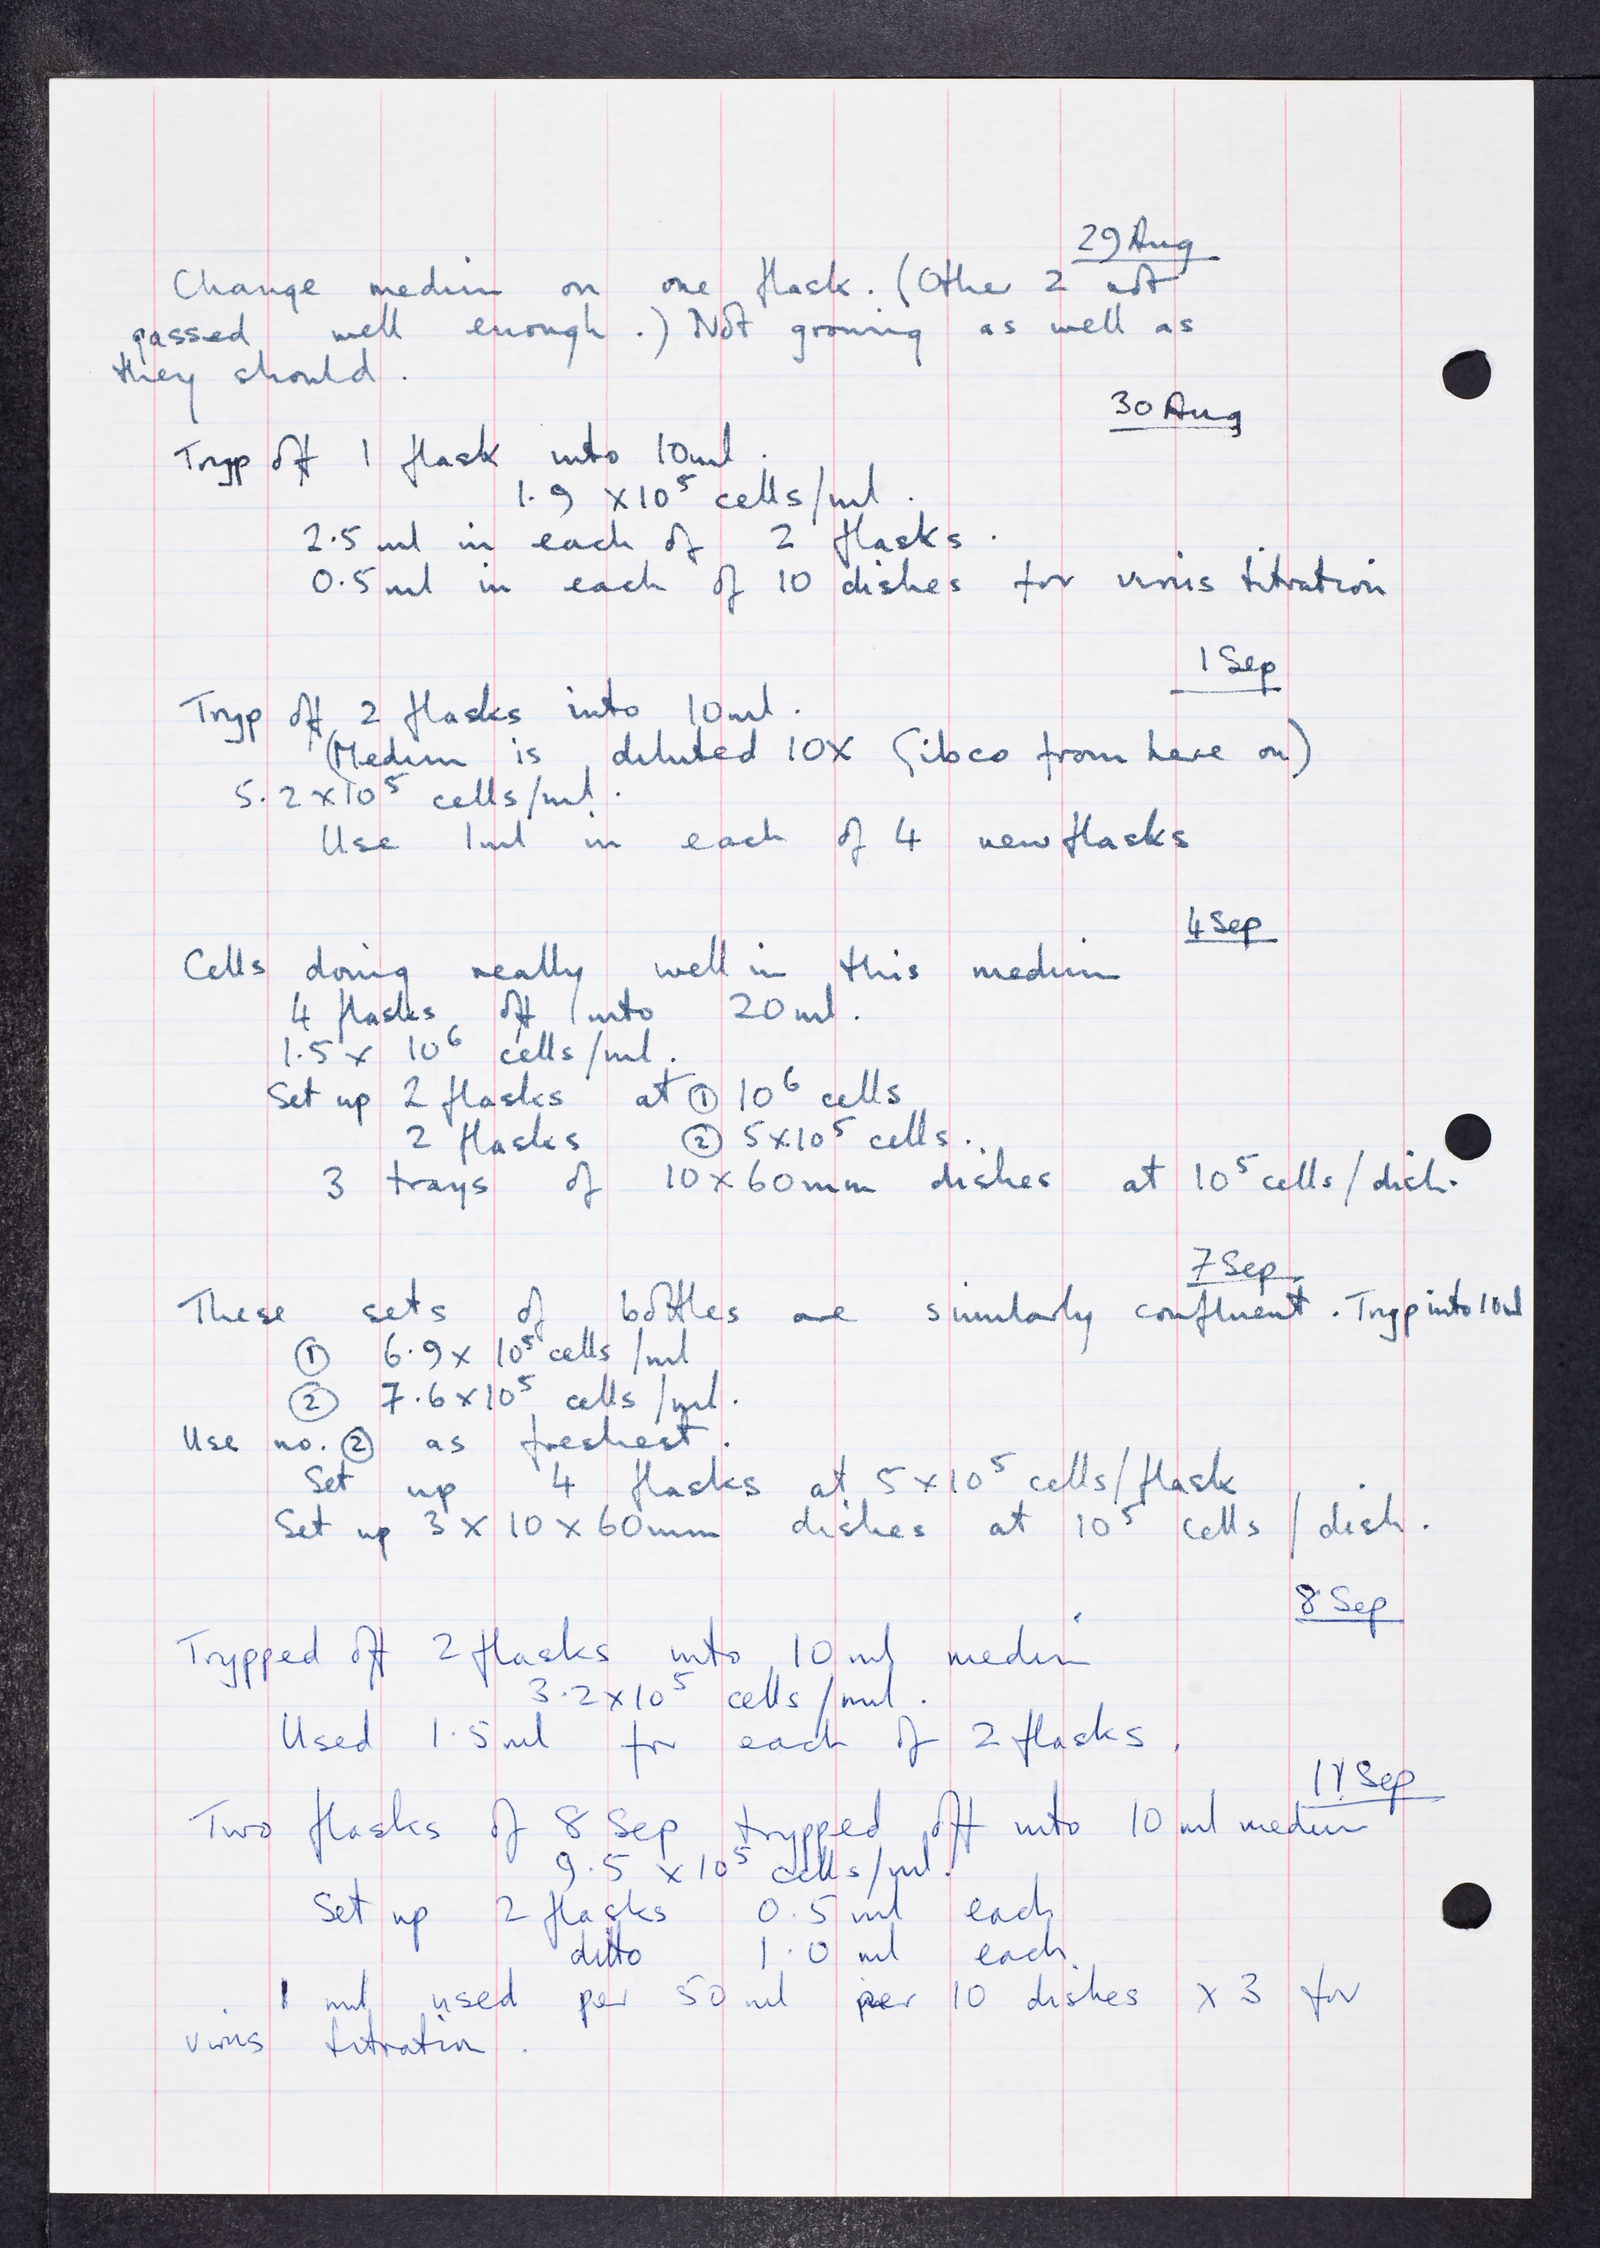 29 Aug
Change medium on one flask. (Other 2 not
gassed well enough.) Not growing as well as
they should.
30 Aug
Tryp off 1 flask into 10ml.
1.9 x10⁵ cells/ml.
2.5 ml in each of 2 flasks.
0.5 ml in each of 10 dishes for virus titration
1 Sep
Tryp off 2 flasks into 10ml.
(Medium is diluted 10X Gibco from here on)
5.2 x 10⁵ cells/ml.
Use 1ml in each of 4 new flasks
4 Sep
Cells doing really well in this medium
4 flasks off into 20ml.
1.5 x 10⁶ cells/ml.
Set up 2 flasks at ① 10⁶ cells
2 flasks ② 5x10⁵ cells.
3 trays of 10x60mm dishes at 10⁵ cells/dish.
7 Sep
These sets of bottles are similarly confluent. Tryp into 10ml
① 6.9x 10⁵ cells/ml
② 7.6x10⁵ cells/ml.
Use no. ② as freshest.
Set up 4 flasks at 5x10⁵ cells/flask
Set up 3 x 10 x 60mm dishes at 10⁵ cells/dish.
8 Sep
Trypped off 2 flasks into 10 ml medium
3.2x10⁵ cells/ml.
Used 1.5ml for each of 2 flasks.
Sep
Two flasks of 8 Sep trypped off into 10 ml medium
9.5 x10⁵ cells/ml.
Set up 2 flasks 0.5 ml each
ditto 1.0 ml each
1 ml used per 50 ml per 10 dishes x 3 for
virus titration.